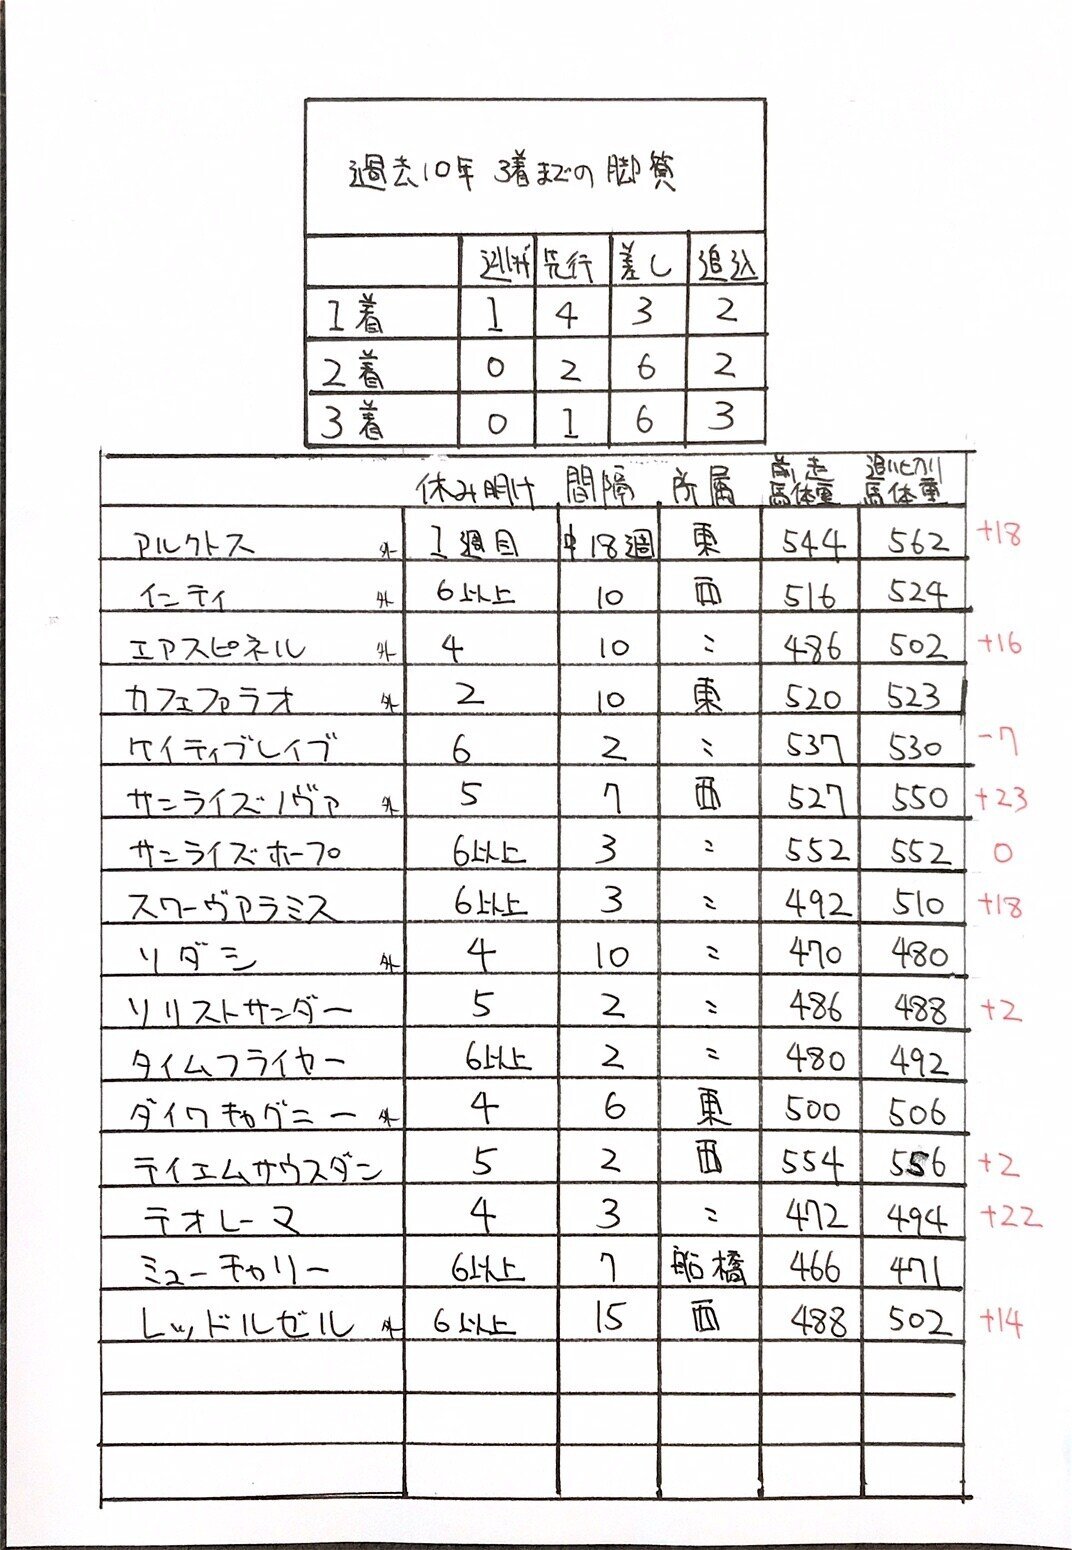 過去10年 3着までの脚質
逃げ 先行 差し 追込
1着 1 4 3 2
2着 0 2 6 2
3着 0 1 6 3
休み明け 間隔 所属 前走馬体重 追い切り馬体重
アルクトス 外 1週目 中18週 東 544 562 +18
インティ 外 6以上 10 西 516 524
エアスピネル 外 4 10 〃 486 502 +16
カフェファラオ 外 2 10 東 520 523
ケイティブレイブ 6 2 〃 537 530 -7
サンライズノヴァ 外 5 7 西 527 550 +23
サンライズホープ 6以上 3 〃 552 552 0
スワーヴアラミス 6以上 3 〃 492 510 +18
ソダシ 外 4 10 〃 470 480
ソリストサンダー 5 2 〃 486 488 +2
タイムフライヤー 6以上 2 〃 480 492
ダイワキャグニー 外 4 6 東 500 506
テイエムサウスダン 5 2 西 554 556 +2
テオレーマ 4 3 〃 472 494 +22
ミューチャリー 6以上 7 船橋 466 471
レッドルゼル 外 6以上 15 西 488 502 +14